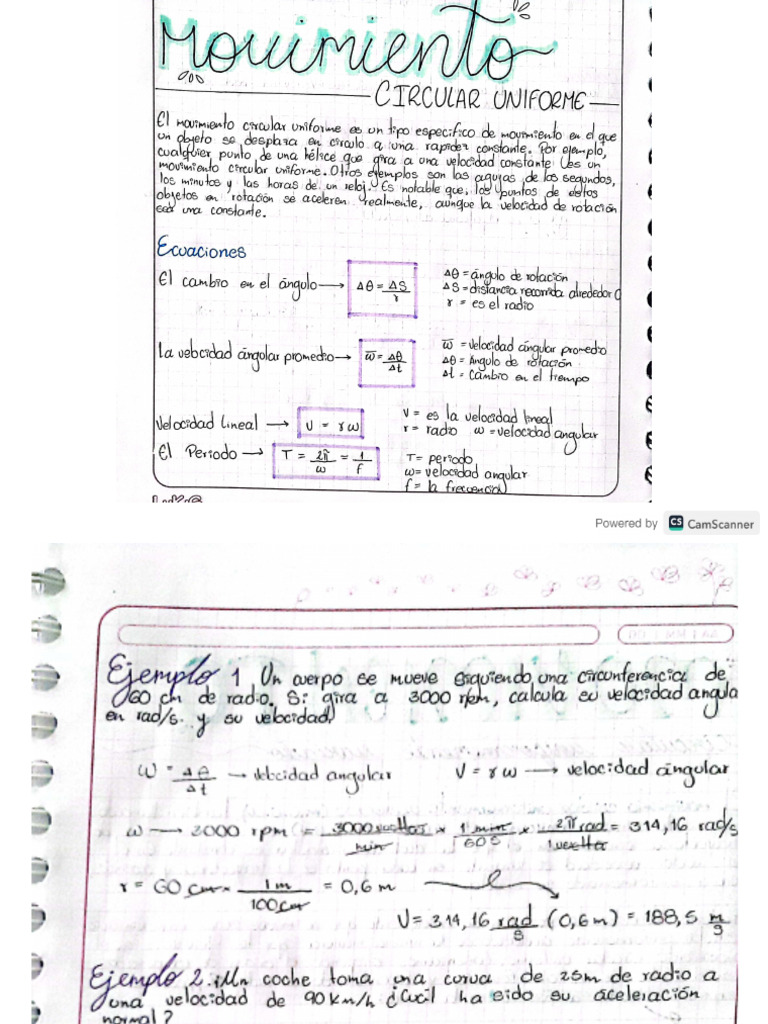 Movimiento
CIRCULAR UNIFORME
El movimiento circular uniforme es un tipo especifico de movimiento en el que
un objeto se desplaza en circulo a una rapidez constante. Por ejemplo,
cualquier punto de una hélice que gira a una velocidad constante es un
movimiento circular uniforme. Otros ejemplos son las agujas de los segundos,
los minutos y las horas de un reloj. Es notable que, los puntos de estos
objetos en rotación se aceleren realmente, aunque la velocidad de rotación
una constante.
Ecuaciones
El cambio en el ángulo → Δθ = ΔS/r
Δθ = ángulo de rotación
ΔS = distancia recorrida alrededor
r = es el radio
la velocidad ángular promedio → ω̄ = Δθ/Δt
ω̄ = velocidad ángular promedio
Δθ = Angulo de rotación
Δt = Cambio en el tiempo
Velocidad lineal → V = rω
V = es la velocidad lineal
r = radio ω = velocidad angular
El Periodo → T = 2π/ω = 1/f
T = periodo
ω = velocidad angular
f = la frecuencia
Powered by CS CamScanner
Ejemplo 1 Un cuerpo se mueve siguiendo una circunferencia de
60 cm de radio. Si gira a 3000 rpm, calcula su velocidad angula
en rad/s. y su velocidad.
ω = Δθ/Δt → velocidad angular V = rω → velocidad ángular
ω → 3000 rpm = 3000 vueltas/min × 1 min/60 s × 2π rad/1 vuelta = 314,16 rad/s
r = 60 cm × 1m/100cm = 0,6 m
V = 314,16 rad/s (0,6 m) = 188,5 m/s
Ejemplo 2. Un coche toma una curva de 25m de radio a
una velocidad de 90 km/h ¿Cuál ha sido su aceleración
normal?